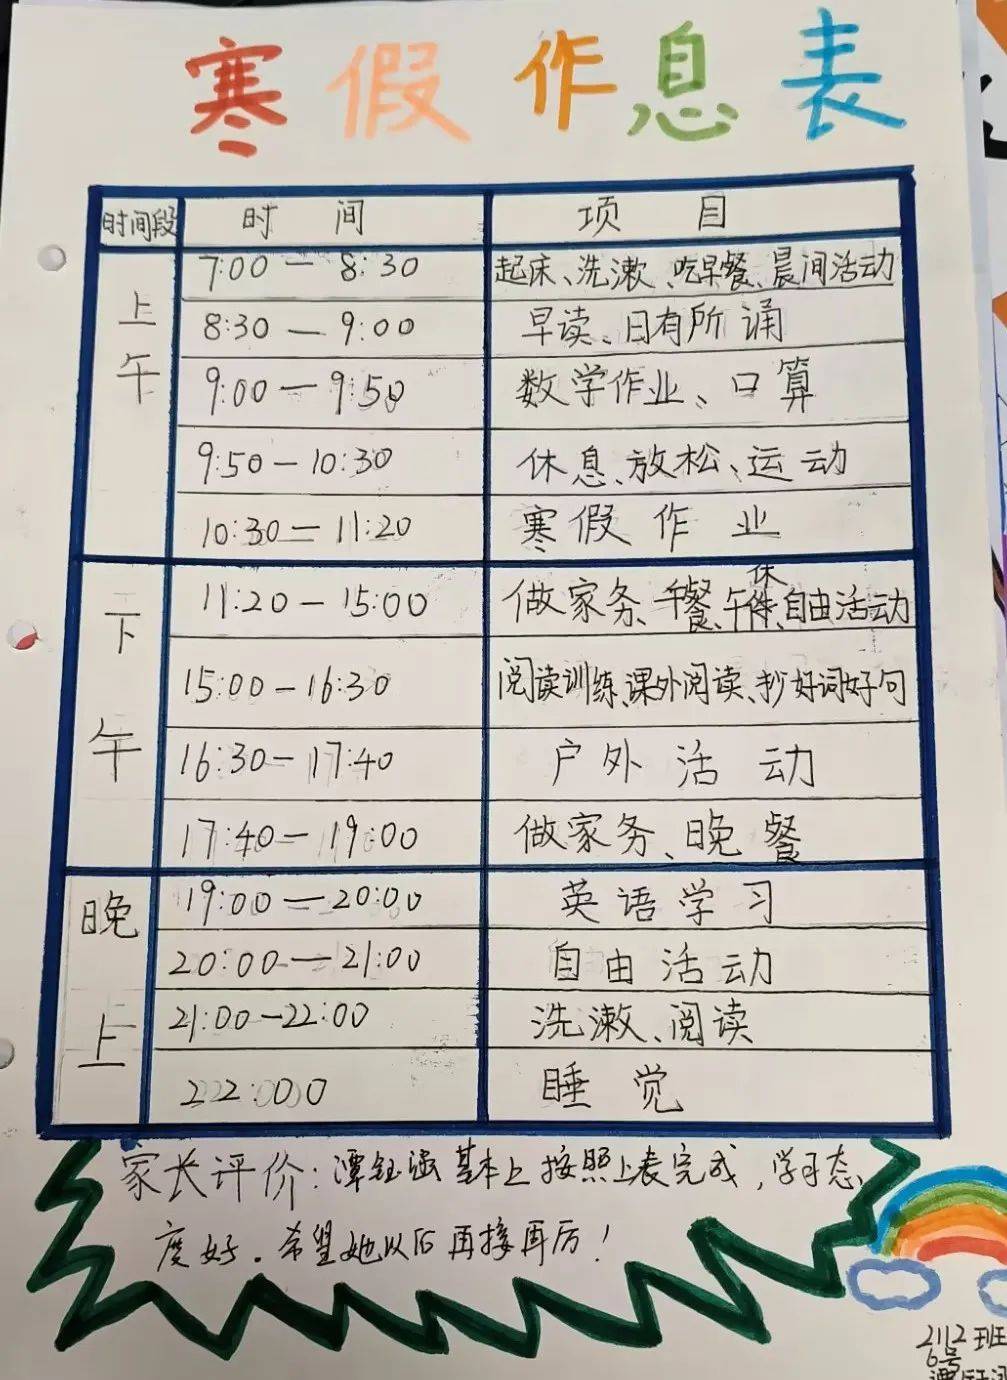 寒假作息表
时间段 时间 项目
上午
7:00—8:30 起床、洗漱、吃早餐、晨间活动
8:30—9:00 早读、日有所诵
9:00—9:50 数学作业、口算
9:50—10:30 休息、放松、运动
10:30—11:20 寒假作业
下午
11:20—15:00 做家务、午餐、午休、自由活动
15:00—16:30 阅读训练、课外阅读、抄好词好句
16:30—17:40 户外活动
17:40—19:00 做家务、晚餐
晚上
19:00—20:00 英语学习
20:00—21:00 自由活动
21:00—22:00 洗漱、阅读
22:00 睡觉
家长评价:谭钰涵基本上按照上表完成,学习态
度好。希望她以后再接再厉!
2112班
6号
谭钰涵